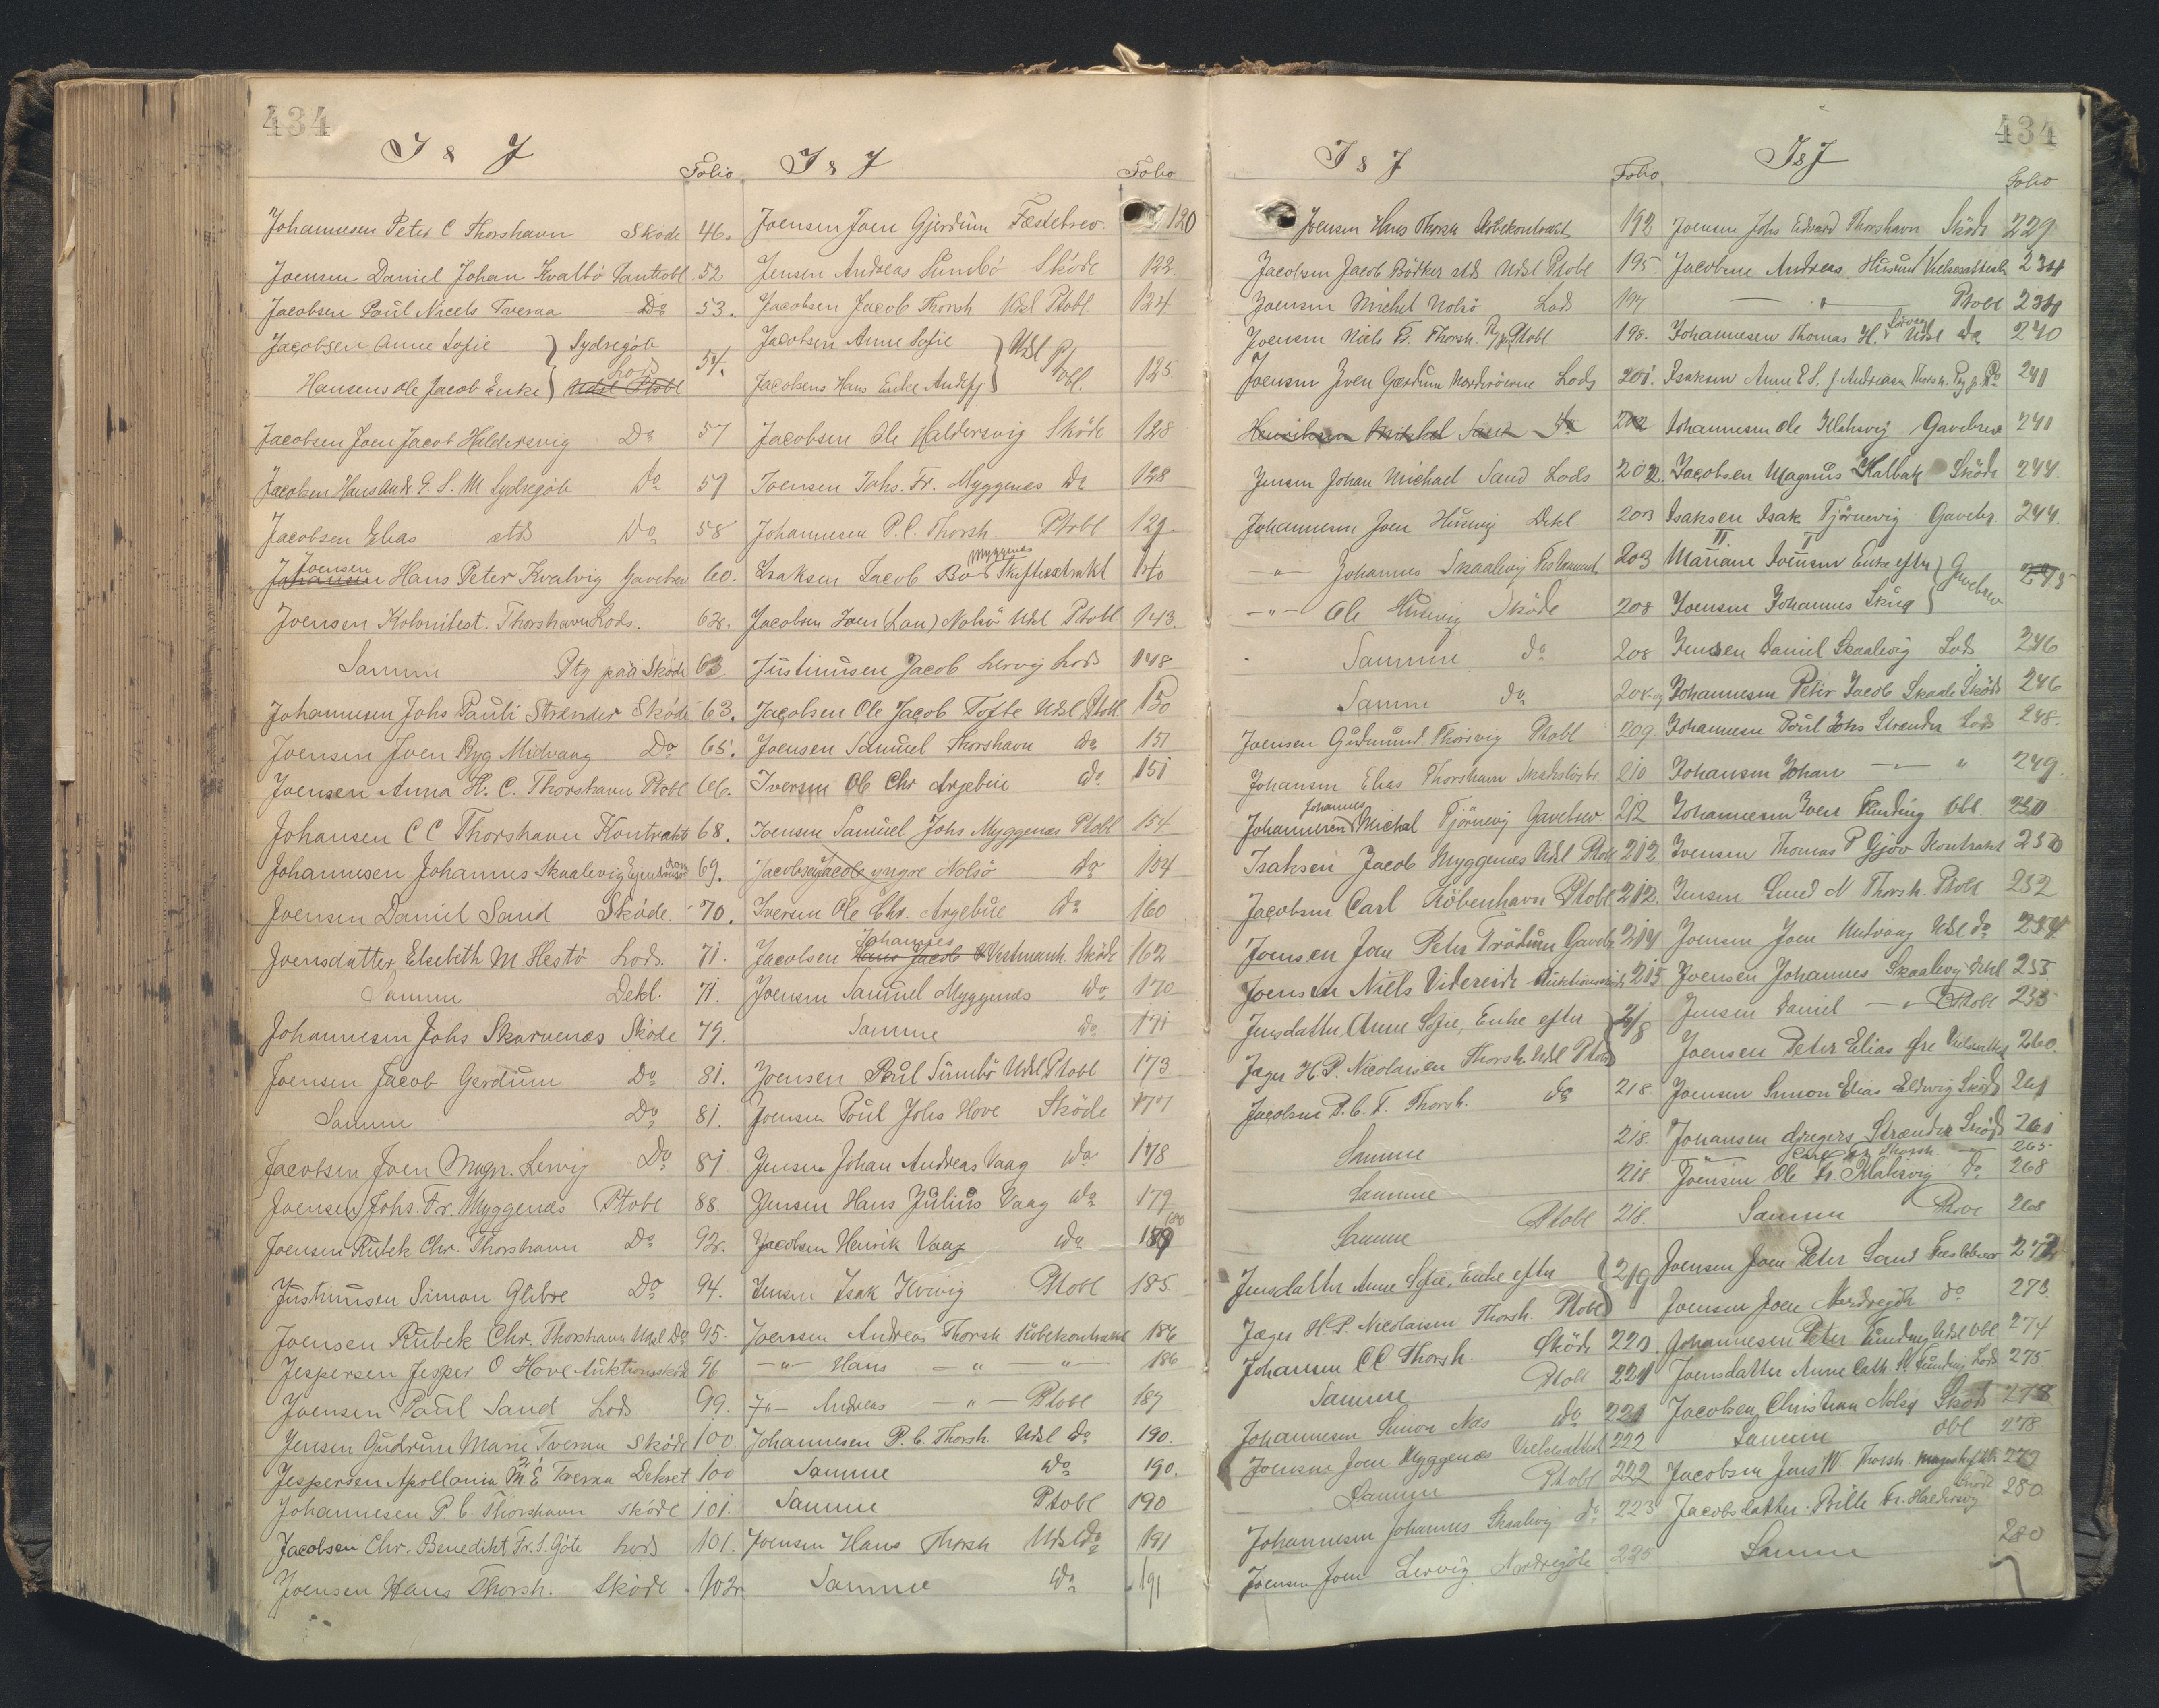 434
I & J
Folio
Johannesen Peter C Thorshavn Skøde 46.
Joensen Daniel Johan Kvalbø Pantobl. 52
Jacobsen Poul Niels Tveraa Do 53.
Jacobsen Anne Sofie } Sydregöte
Lods 54.
Hansens Ole Jacob Enke } Udsl Ptobl
Jacobsen Joen Jacob Haldersvig Do 57
Jacobsen Hans Andr. G. S. M. Sydregöte Do 57
Jacobsen Elias sts Do 58
Joensen
Johansen Hans Peter Kvalvig Gavebrev 60.
Joensen Kolonibest. Thorshavn Lods. 62.
Samme Ptg paa Skøde 63
Johannesen Johs Pauli Strender Skøde 63.
Joensen Joen Ryg Midvaag Do 65.
Joensen Anna H. C. Thorshavn Ptobl 66.
Johansen C C Thorshavn Kontrakt 68.
Johannesen Johannes Skaalevig 69.
Joensen Daniel Sand Skøde. 70.
Joensdatter Elsebeth M Hestø Lods. 71.
Samme Dekl. 71.
Johannesen Johs Skarvenæs Skøde 79.
Joensen Jacob Gerdum Do 81.
Samme Do 81.
Jacobsen Joen Magn. Lervig Do 81
Joensen Johs. Fr. Myggenæs Ptobl 88.
Joensen Rubek Chr. Thorshavn Do 92.
Justinusen Simon Glibre Do 94.
Joensen Rubek Chr. Thorshavn Udsl Do 95.
Jespersen Jesper O Hove Auktionsskøde 96
Joensen Poul Sand Lods 99.
Jensen Gudrun Marie Tveraa Skøde 100.
Jespersen Apollonia M. E Tveraa Dekret 100
Johannesen P. C. Thorshavn Skøde 101.
Jacobsen Chr. Benedikt Fr. S. Göte Lods 101.
Joensen Hans Thorsh. Skøde 102.
I & J
Folio
Joensen Joen Gjerdum Fæstebrev 120
Jensen Andreas Sumbø Skøde 122.
Jacobsen Jacob Thorsh Udsl Ptobl 124.
Jacobsen Anne Sofie } Udsl Ptobl.
Jacobsens Hans Enke 125.
Jacobsen Ole Haldersvig Skøde 128
Joensen Johs. Fr. Myggenæs Do 128
Johannesen P. C. Thorsh. Ptobl 129.
Myggenæs
Isaksen Jacob Bos Skifteextrakt 140
Jacobsen Joen (Lan) Nolsø Udsl Ptobl 143.
Justinusen Jacob Lervig Lods 148
Jacobsen Ole Jacob Tofte Udsl Ptobl 150
Joensen Samuel Thorshavn do 151
Iversen Ole Chr Argebue do. 151
Joensen Samuel Johs Myggenæs Ptobl 154
Jacobsen Jacob yngre Nolsø do 104
Iversen Ole Chr. Argebue do 160
Johannes
Jacobsen Hans Jacob Vestmanh. Skøde 162
Joensen Samuel Myggenæs do 170
Samme do 171
Joensen Poul Sumbø Udsl Ptobl 173
Joensen Poul Johs Hove Skøde 177
Jensen Johan Andreas Vaag do 178
Jensen Hans Julius Vaag do 179
180
Jacobsen Henrik Vaag do 189
Jensen Isak Hvivig Ptobl 185
Joensen Andreas Thorsh. Købekontrakt 186
" Hans " " 186
" Andreas " Ptobl 187
Johannesen P. C. Thorsh. Udsl do 190.
Samme do 190.
Samme Ptobl 190
Joensen Hans Thorsh Udsl do 191
Samme do 191
434
I & J
Folio
Joensen Hans Thorsh Købekontrakt 192
Jacobsen Jacob Bödker sts Udsl Ptobl 195.
Joensen Michel Nolsø Lods 197
Joensen Niels F. Thorsh. Ptobl 198.
Joensen Joen Gærdum Norderøerne Lods 201.
Henriksen Michel Sand do 202
Jensen Johan Michael Sand Lods 202.
Johannesen Joen Husevig Dekl 203
" Johannes Skaalevig Testament 203
" Ole Husevig Skøde 208
Samme do 208
Samme do 208
Joensen Gudmund Thorsvig Ptobl 209
Johansen Elias Thorshavn 210
Johannes
Johannesen Michal Tjörnevig Gavebrev. 212
Isaksen Jacob Myggenæs Udsl Ptobl 212
Jacobsen Carl København Ptobl 212.
Joensen Joen Peter Trödum Gavebr 214
Joensen Niels Videreide Auktionsskøde 215
Jensdatter Anne Sofie, Enke efter } 218
Jæger H. P. Nicolaisen Thorsh. Udsl Ptobl
Jacobsen P. C. T. Thorsh. do 218.
Samme 218.
Samme 218.
Samme Ptobl 218.
Jensdatter Anne Sofie, Enke efter } 219
Jæger H. P. Nicolaisen Thorsh. Ptobl
Johansen C C Thorsh. Skøde 220.
Samme Ptobl 221
Johannesen Simon Næs do 221
Joensen Joen Myggenæs Vielsesattest 222
Samme Ptobl 222
Johannesen Johannes Skaalevig do 223
Joensen Joen Lervig Nordregöte 225
I & J
Folio
Joensen Johs Edvard Thorshavn Skøde 229
Jacobsen Andreas Husum Vielsesattest 234
" Ptobl 234
Sörvaag
Johannesen Thomas H. Udsl do 240
Isaksen Anne E S. f. Andreasen Thorsh. 241
Johannesen Ole Klaksvig Gavebrev 241
Jacobsen Magnus Kalbak Skøde 244.
Isaksen Isak Tjörnevig Gavebr. 244.
II I
Mariane Joensen Enke efter } Gavebrev 245
Joensen Johannes Skug
Jensen Daniel Skaalevig Lods 246
Johannesen Peter Jacob Skaale Skøde 246
Johannesen Poul Johs Strender Lods 248.
Johansen Johan " " 249.
Johannesen Joen Funding Obl. 250
Joensen Thomas P Gjov Kontrakt 250
Jensen Smed N Thorsh. Ptobl 252
Joensen Joen Midvaag Udsl do 254
Joensen Johannes Skaalevig Dekl 255
Jensen Daniel " Ptobl 255
Joensen Peter Elias Øre 260.
Joensen Simon Elias Eldevig Skøde 261
Johansen Strender Skøde 261
Thorsh. 265
Joensen Ole Fr. Klaksvig do 268
Samme 268
Joensen Joen Peter Sand Fæstebrev 272
Joensen Joen Nordregöte do 273.
Johannesen Peter Funding Udsl Obl 274
Joensdatter Anne Cath. Funding Lods 275
Jacobsen Christian Nolsø Skøde 278
Samme Obl 278
Jacobsen Jens W. Thorsh. 279
Skøde
Jacobsdatter Bille Fr. Haldersvig 280
Samme 280